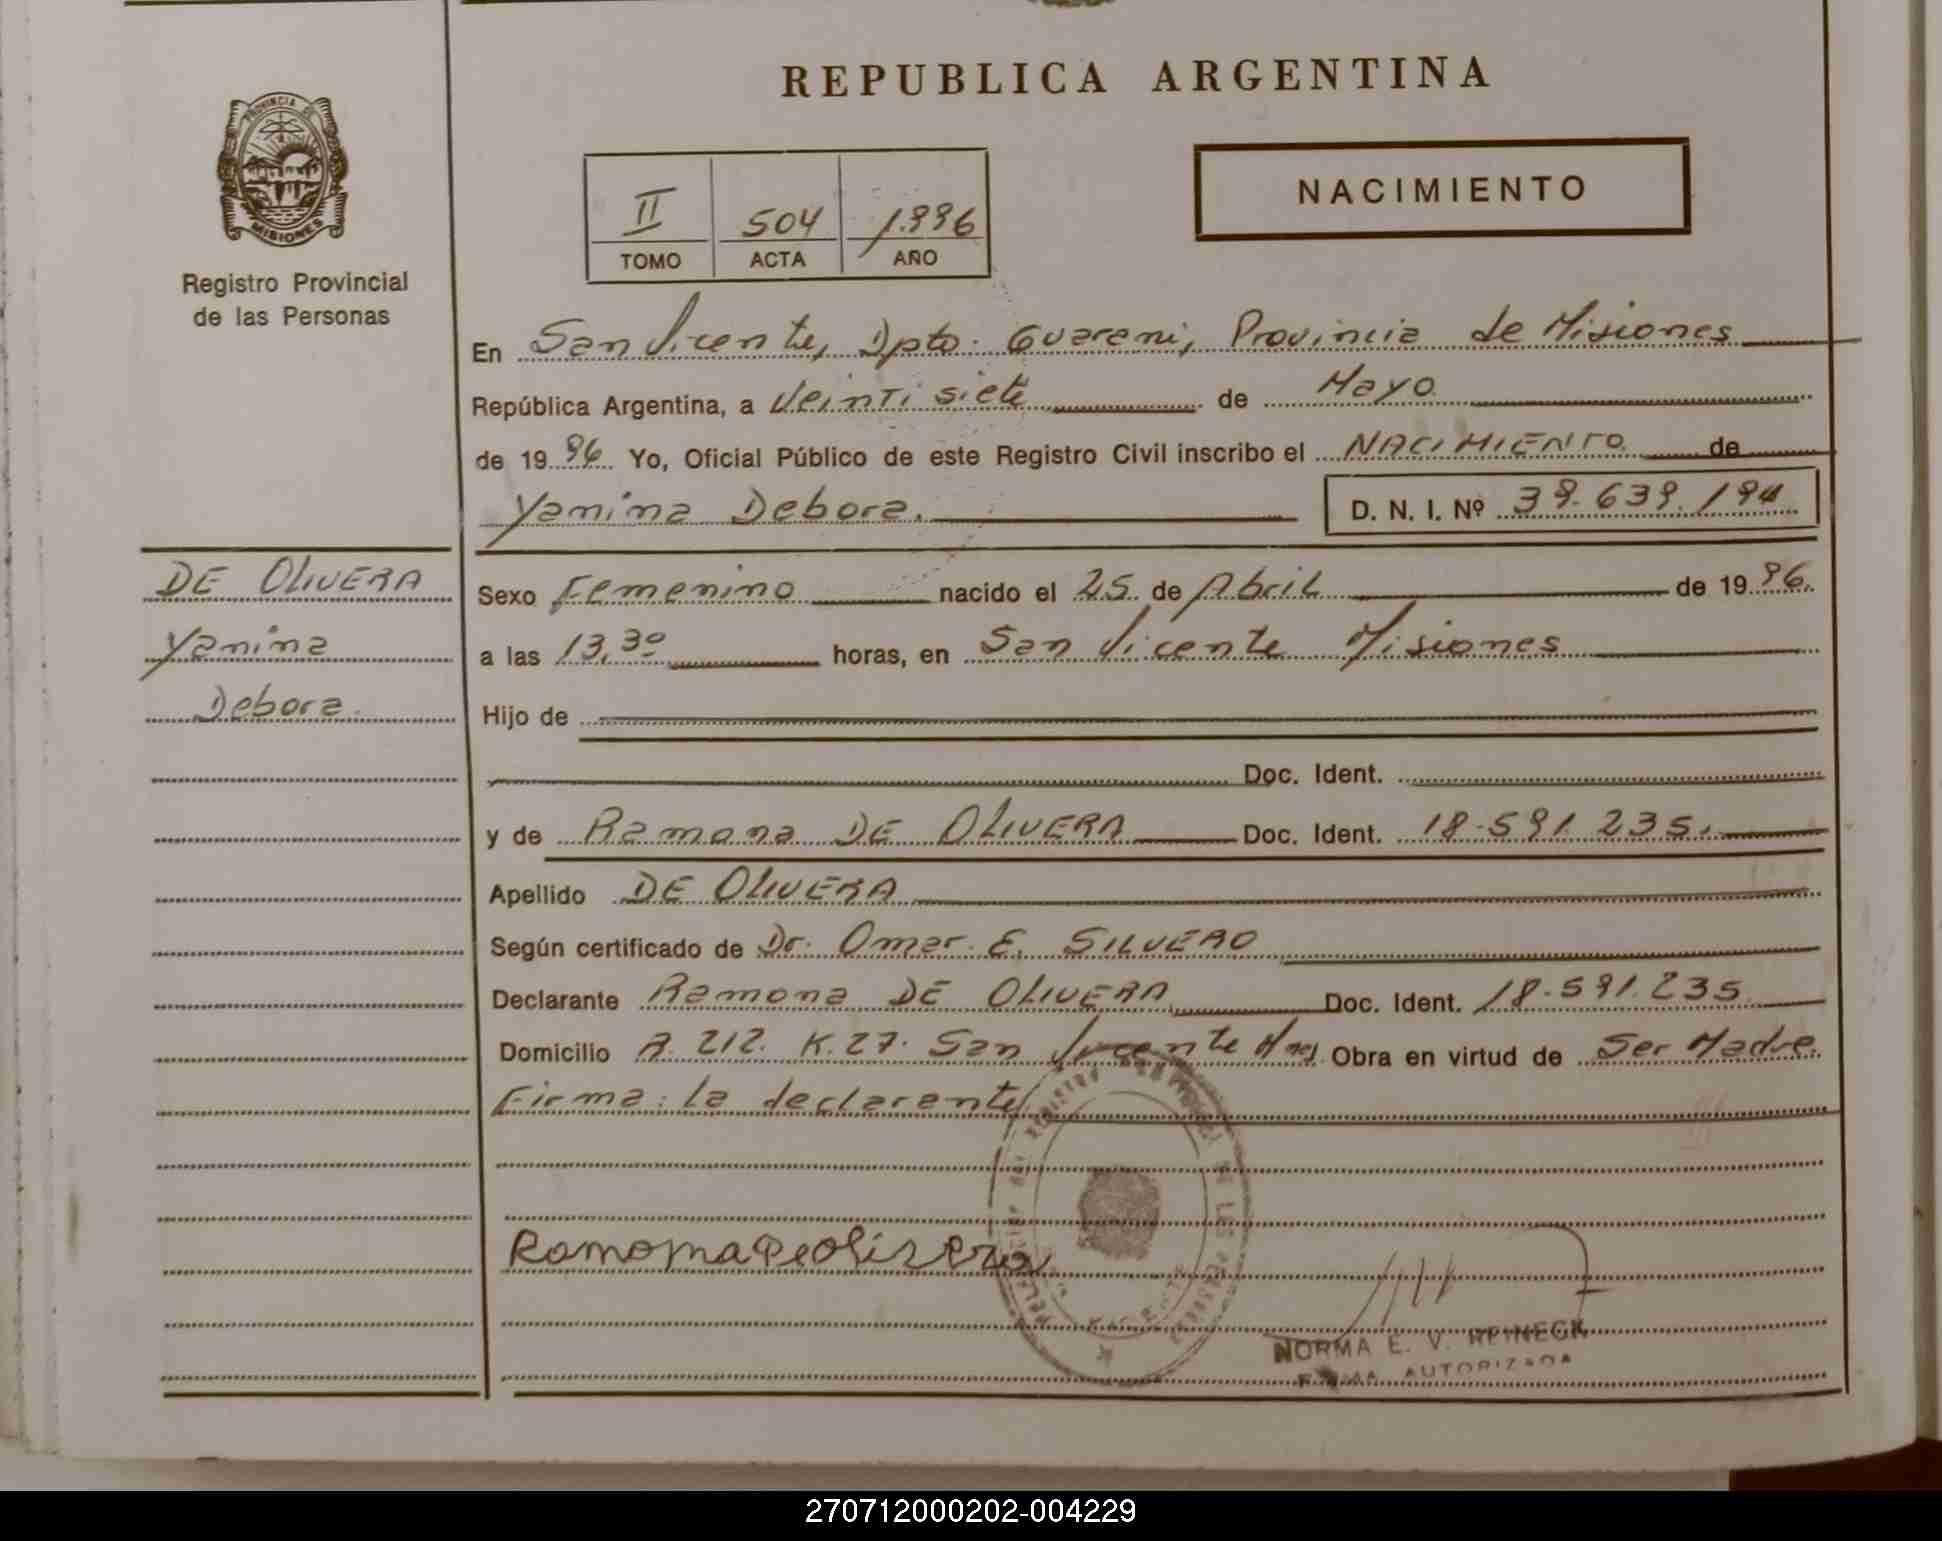 REPUBLICA ARGENTINA
PROVINCIA DE
MISIONES
Registro Provincial
de las Personas
II 504 1.996
TOMO ACTA AÑO
NACIMIENTO
En San Vicente, Dpto. Guarani, Provincia de Misiones
República Argentina, a Veintisiete de Mayo
de 1996 Yo, Oficial Público de este Registro Civil inscribo el NACIMIENTO de
Yanina Debora. D. N. I. Nº 39.639.194
DE OLIVERA
Yanina
Debora.
Sexo Femenino nacido el 25 de Abril de 1996.
a las 13,30 horas, en San Vicente Misiones
Hijo de
Doc. Ident.
y de Ramona DE OLIVERA Doc. Ident. 18.591.235.
Apellido DE OLIVERA
Según certificado de Dr. Omar E. SILVERO
Declarante Ramona DE OLIVERA Doc. Ident. 18.591.235
Domicilio R. 212. K.27. San Vicente Mnes Obra en virtud de Ser Madre.
Firma: la declarante
NORMA E. V. REINECK
FIRMA AUTORIZADA
270712000202-004229